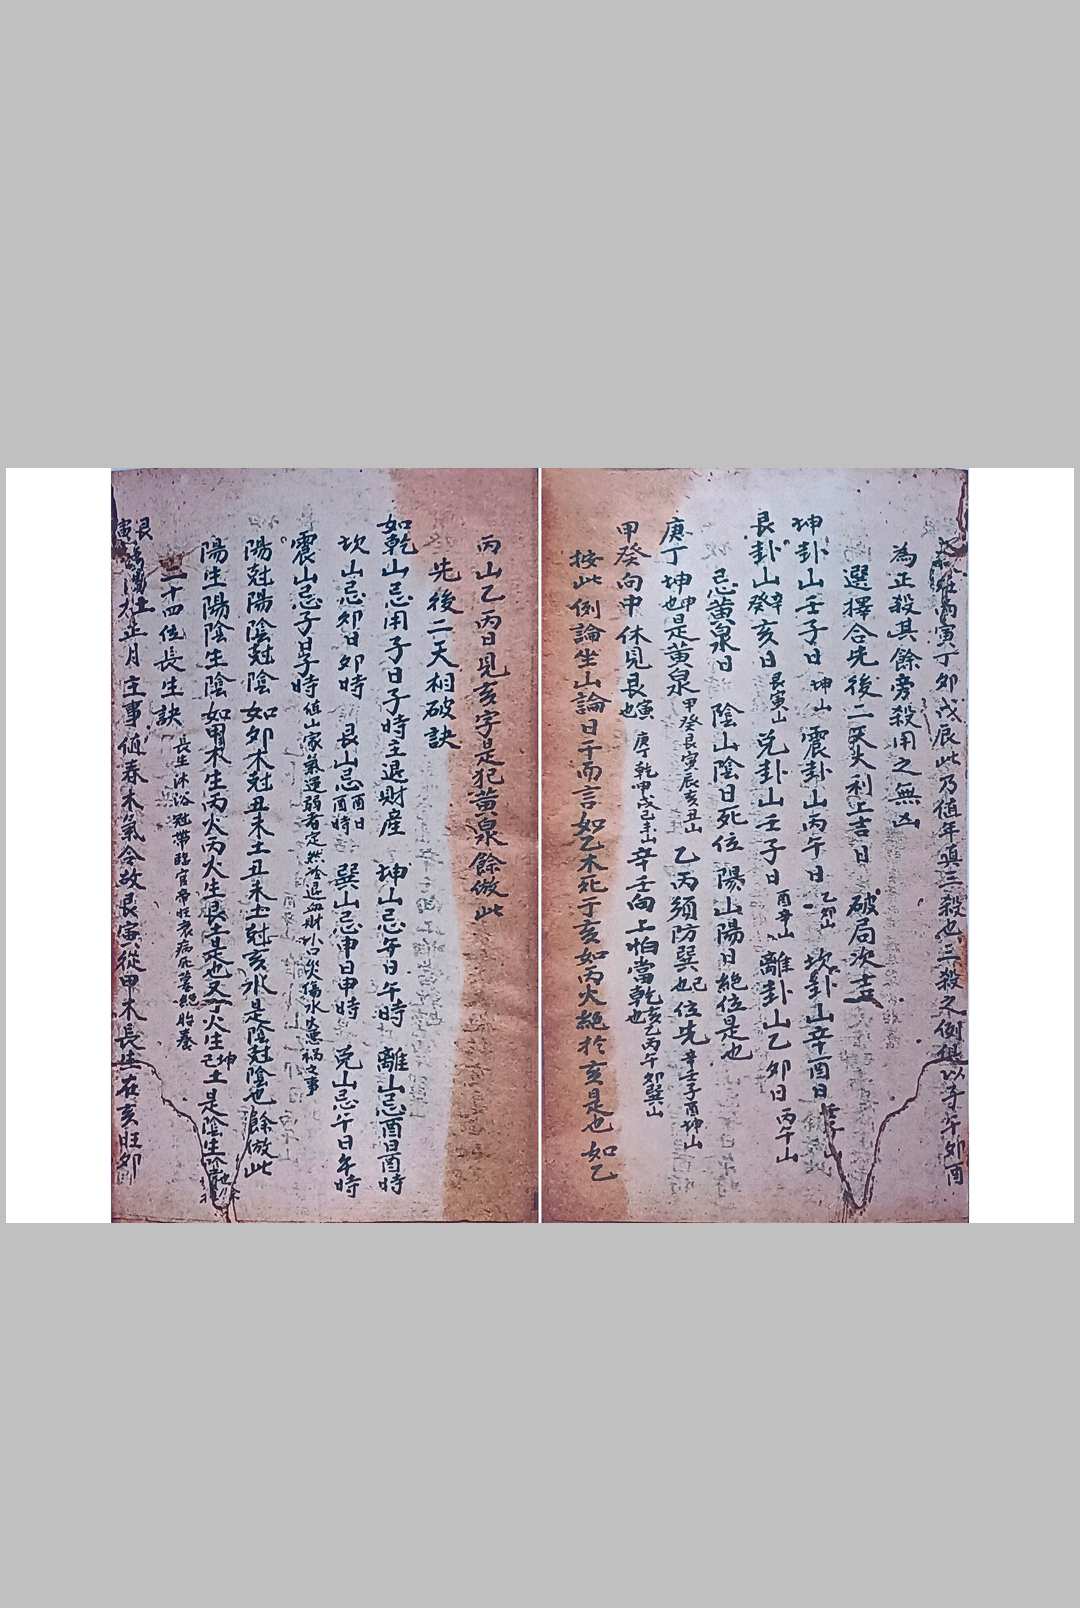 寅丁卯戊辰此乃值年真三殺也三殺之例以子午卯酉
為正殺其餘旁殺用之無凶
選擇合先後二天大利上吉日 破局次吉
坤卦山壬子日坤山 震卦山丙午日乙卯山 坎卦山辛酉日
艮卦山癸亥日艮寅山 兌卦山壬子日酉辛山 離卦山乙卯日丙午山
忌黃泉日 陰山陰日死位 陽山陽日絕位是也
庚丁坤申也是黃泉甲癸艮寅辰亥丑山 乙丙須防巽巳也位先辛壬子酉坤山
甲癸向中休見艮寅也庚丁乾甲戌山 辛壬向上怕當乾亥也乙丙午卯巽山
按此例論坐山論日干而言如乙木死于亥如丙火絕於亥是也如乙
丙山乙丙日見亥字是犯黃泉餘倣此
先後二天相破訣
如乾山忌用子日子時主退財產 坤山忌午日午時 離山忌酉日酉時
坎山忌卯日卯時 艮山忌酉日酉時 巽山忌申日申時 兌山忌午日午時
震山忌子日子時值山家氣運弱者定然退財小口災傷水患禍之事
陽尅陽陰尅陰如卯木尅丑未土丑未土尅亥水是陰尅陰也餘倣此
陽生陽陰生陰如甲木生丙火丙火生艮土是也又丁火生坤己土是陰生陰
二十四位長生訣長生沐浴冠帶臨官帝旺衰病死墓絕胎養
艮寅土正月主事值春木氣令故艮寅從甲木長生在亥旺卯